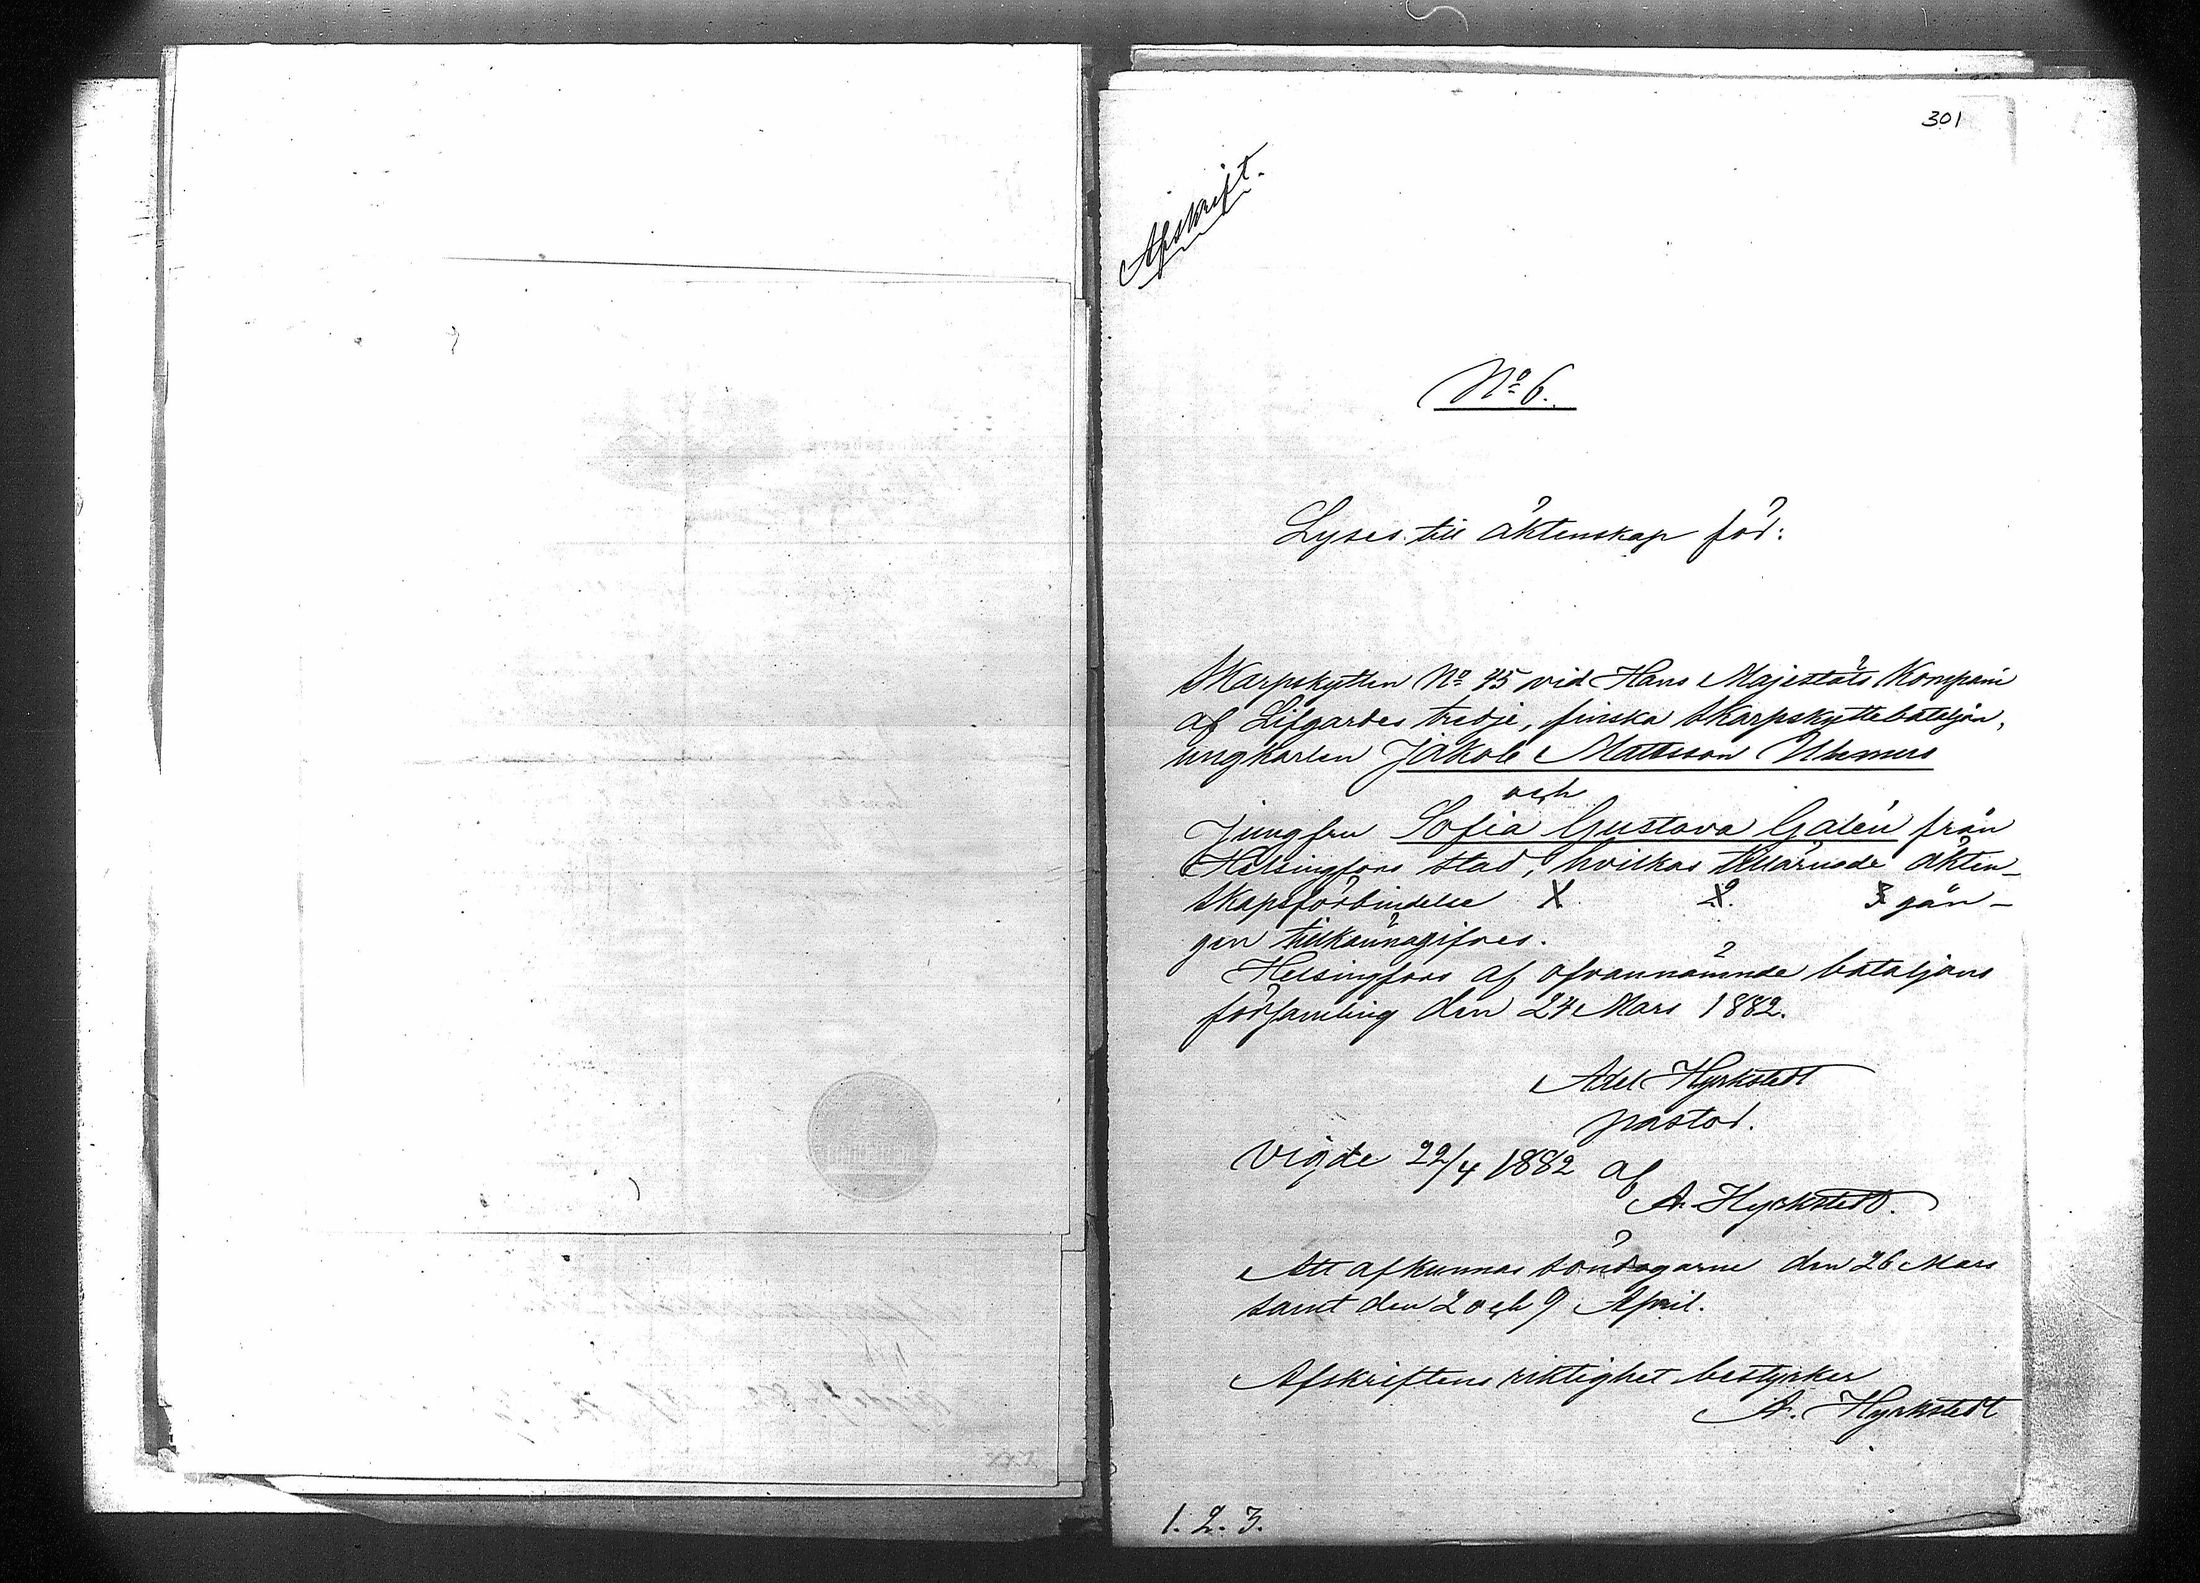 301
Afskrift.
No 6.
Lyses till äktenskap för:
Skarpskytten No 45 vid Hans Majestäts Kompani
af Lifgardes tredje, finska Skarpskyttebataljon,
ungkarlen Jakob Mattsson
och
Jungfru Sofia Gustava Galén från
Helsingfors stad, hvilkas tillärnade äkten-
skapsförbindelse X. X. 3 gån-
gen tillkännagifves.
Helsingfors af ofvannämnde bataljons
församling den 24 Mars 1882.
Axel Hyrkstedt
pastor.
Vigde 22/4 1882 af
A. Hyrkstedt.
Att afkunnas söndagarne den 26 Mars
samt den 2 och 9 April.
Afskriftens riktighet bestyrker
A. Hyrkstedt
1. 2. 3.